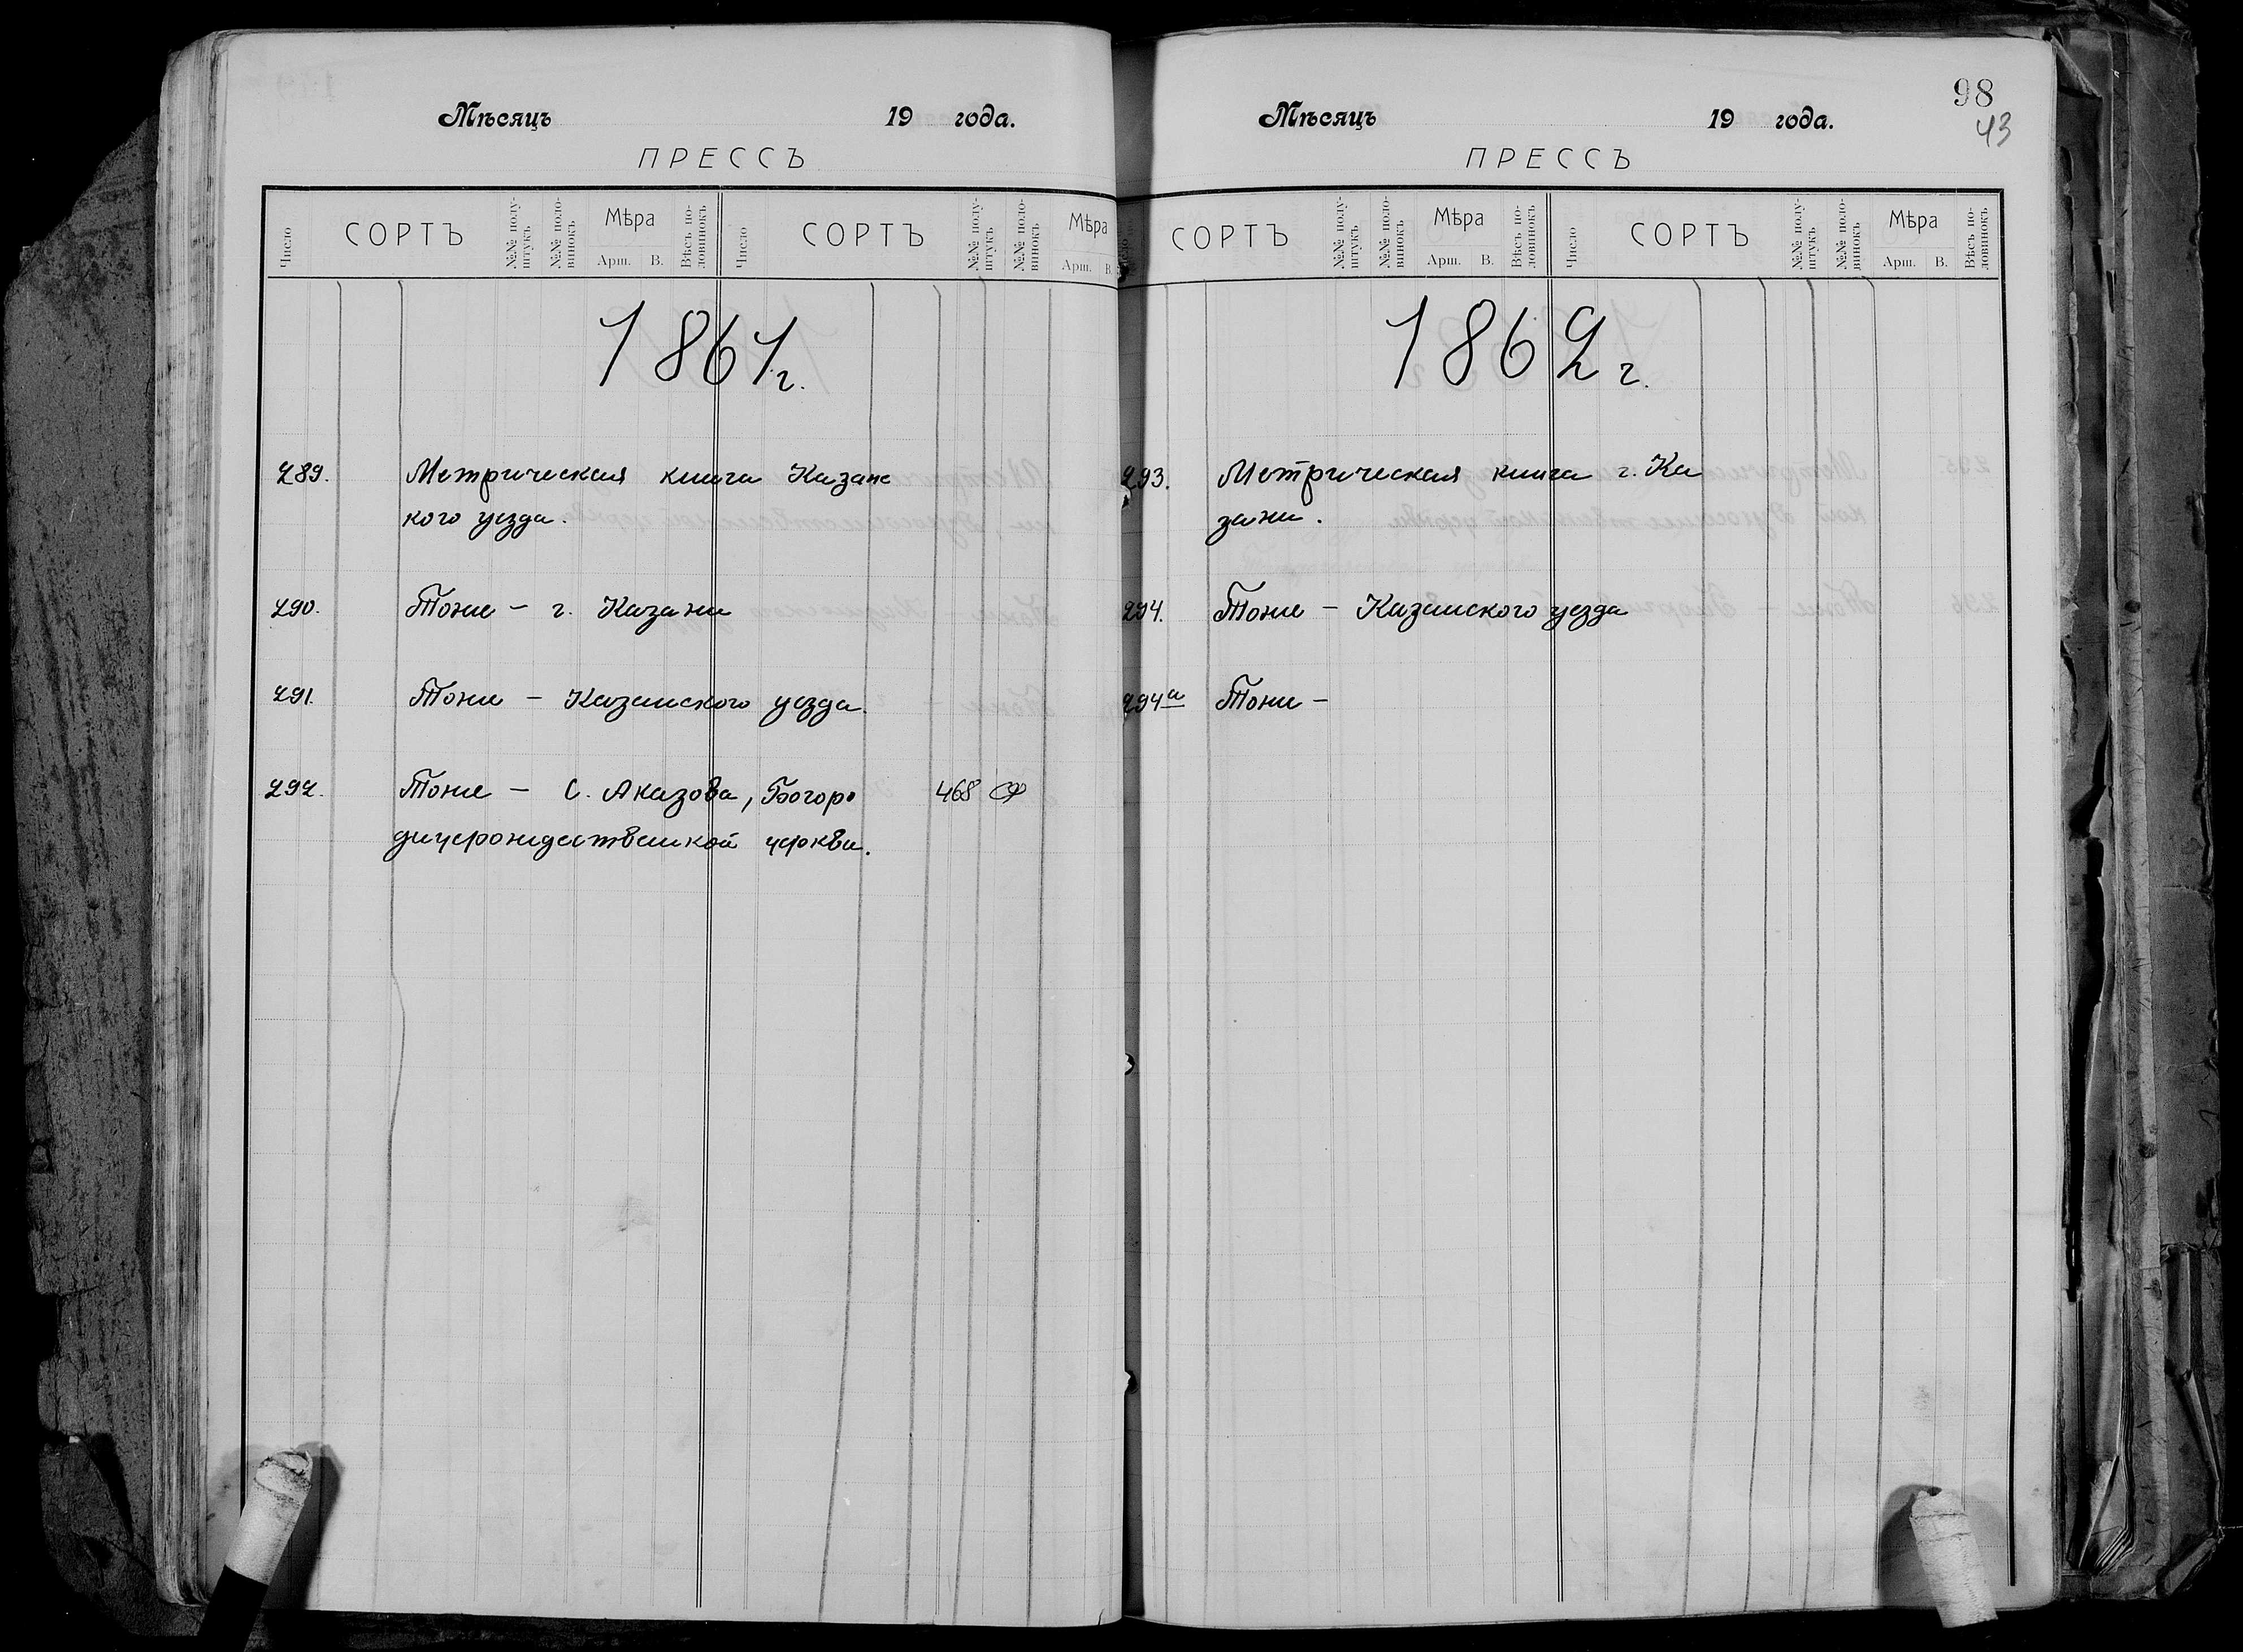 Мѣсяцъ 19 года.
ПРЕССЪ
Число СОРТЪ №№ полу-штукъ №№ поло-винокъ Мѣра Арш. В. Вѣсъ по-ловинокъ Число СОРТЪ №№ полу-штукъ №№ поло-винокъ Мѣра Арш. В.
1861 г.
289. Метрическая книга Казанс
кого уезда.
290. Тоже - г. Казани
291. Тоже - Казанского уезда.
292. Тоже - с. Аказова, Богоро 468
дицерождественской церкви.
98
43
Мѣсяцъ 19 года.
ПРЕССЪ
СОРТЪ №№ полу-штукъ №№ поло-винокъ Мѣра Арш. В. Вѣсъ по-ловинокъ Число СОРТЪ №№ полу-штукъ №№ поло-винокъ Мѣра Арш. В. Вѣсъ по-ловинокъ
1862 г.
293. Метрическая книга г. Ка
зани.
294. Тоже - Казанского уезда
294а Тоже -